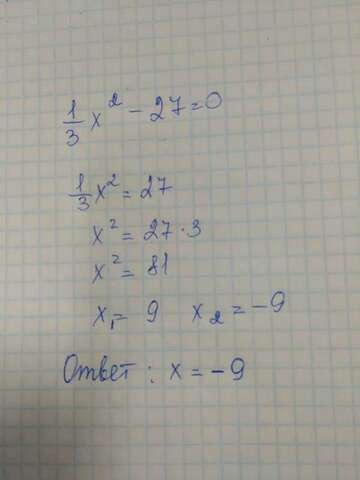 1/3 x² - 27 = 0
1/3 x² = 27
x² = 27 · 3
x² = 81
x₁ = 9 x₂ = -9
Ответ: x = -9